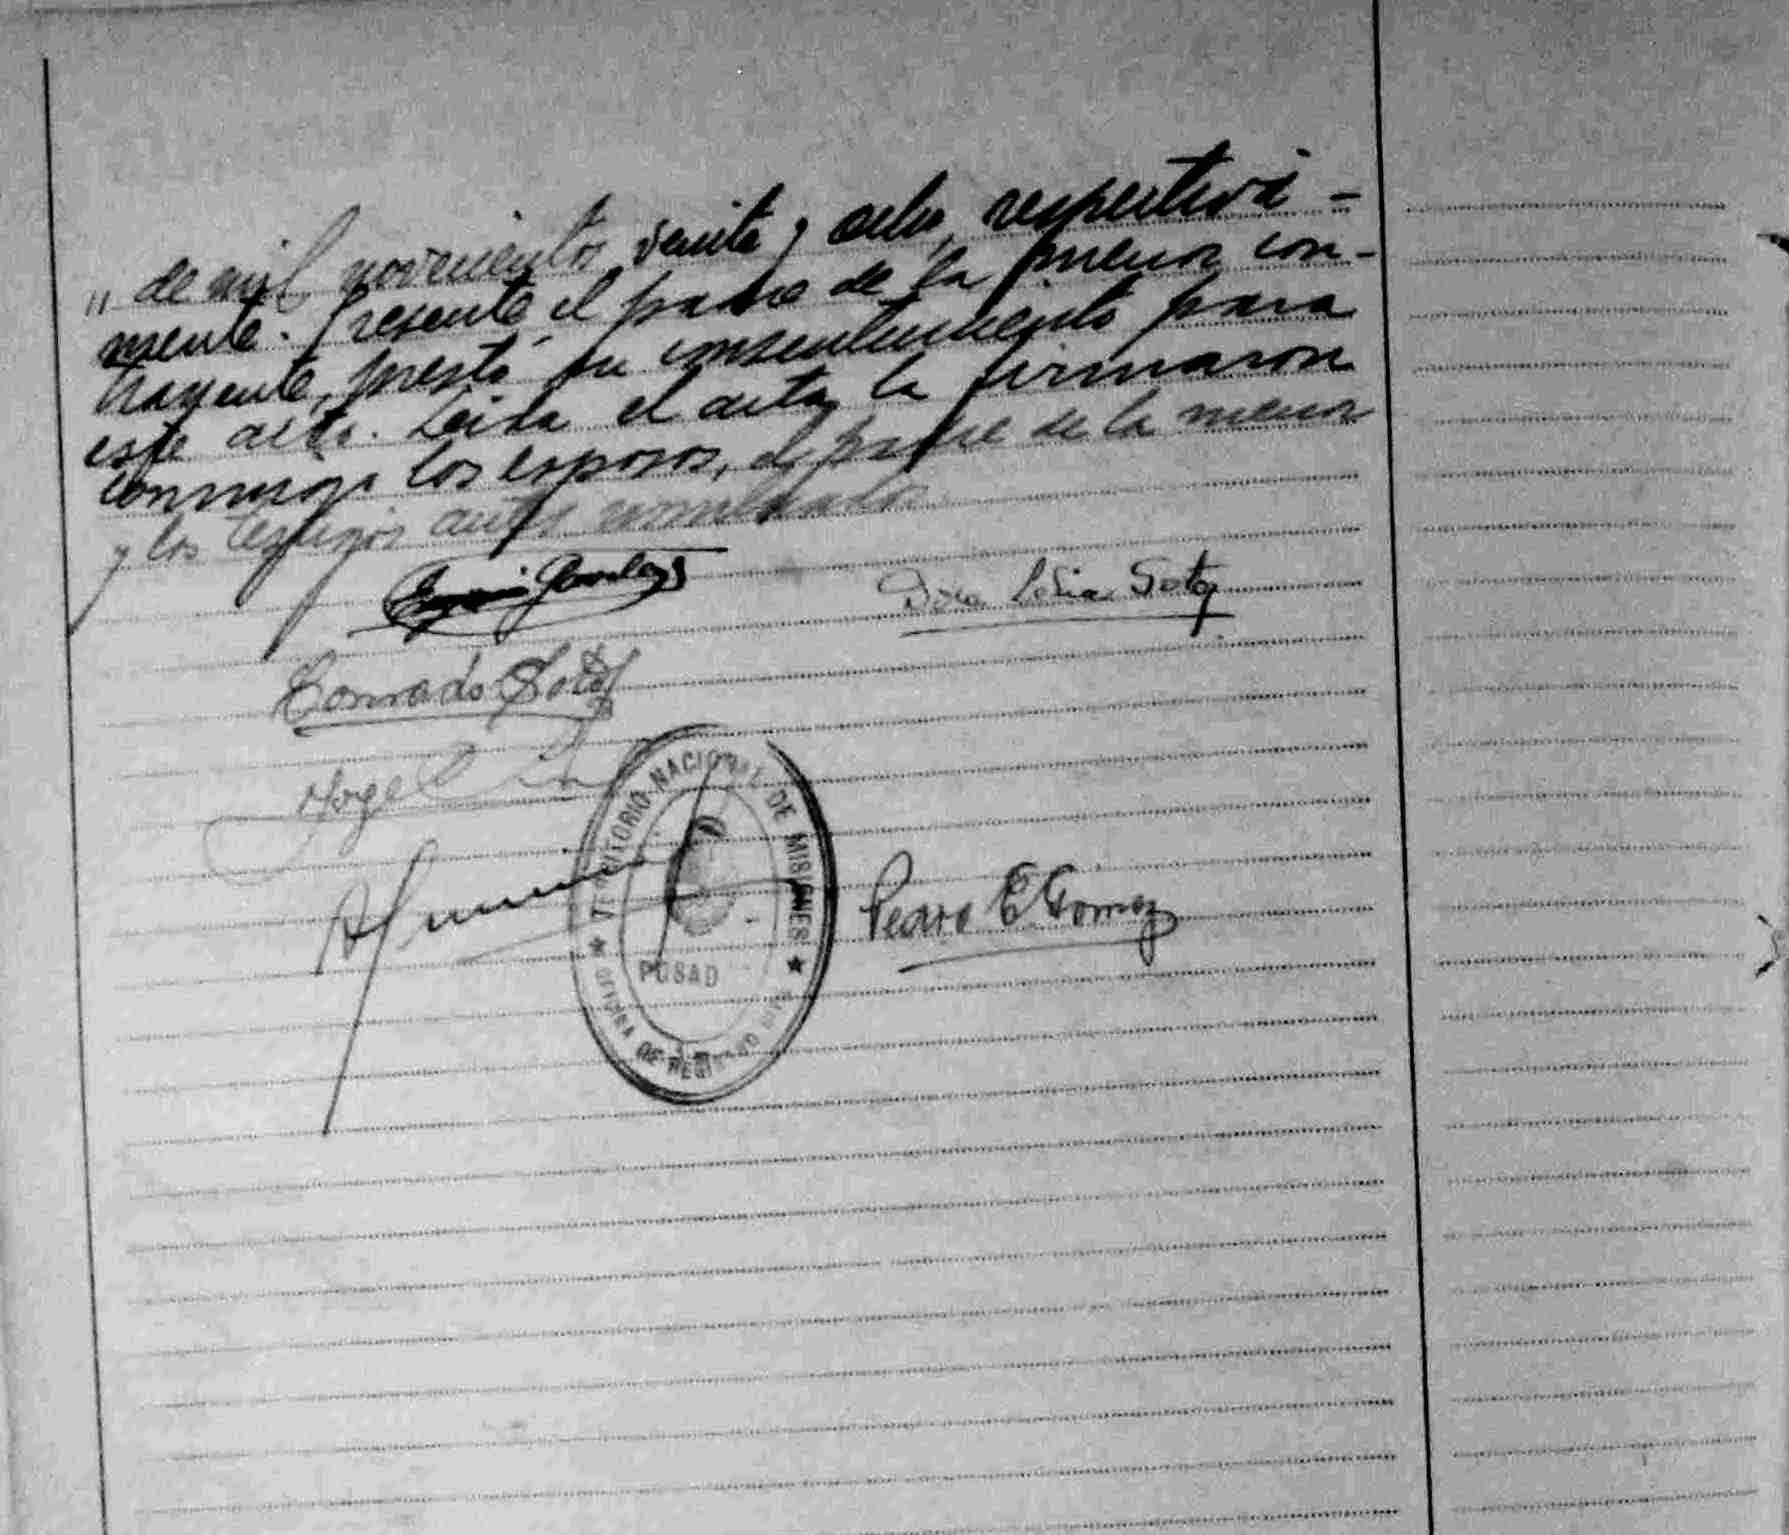 „ de mil novecientos veinte y ocho, respectiva-
mente. Presente el padre de la menor con-
trayente, prestó su consentimiento para
este acto. Leída el acta, la firmaron
conmigo los esposos, el padre de la menor
y los testigos antes nombrados
Dora Soto
Conrado Soto
Pedro E. Gomez
TERRITORIO NACIONAL DE MISIONES
POSAD
OFICINA DE REGISTRO